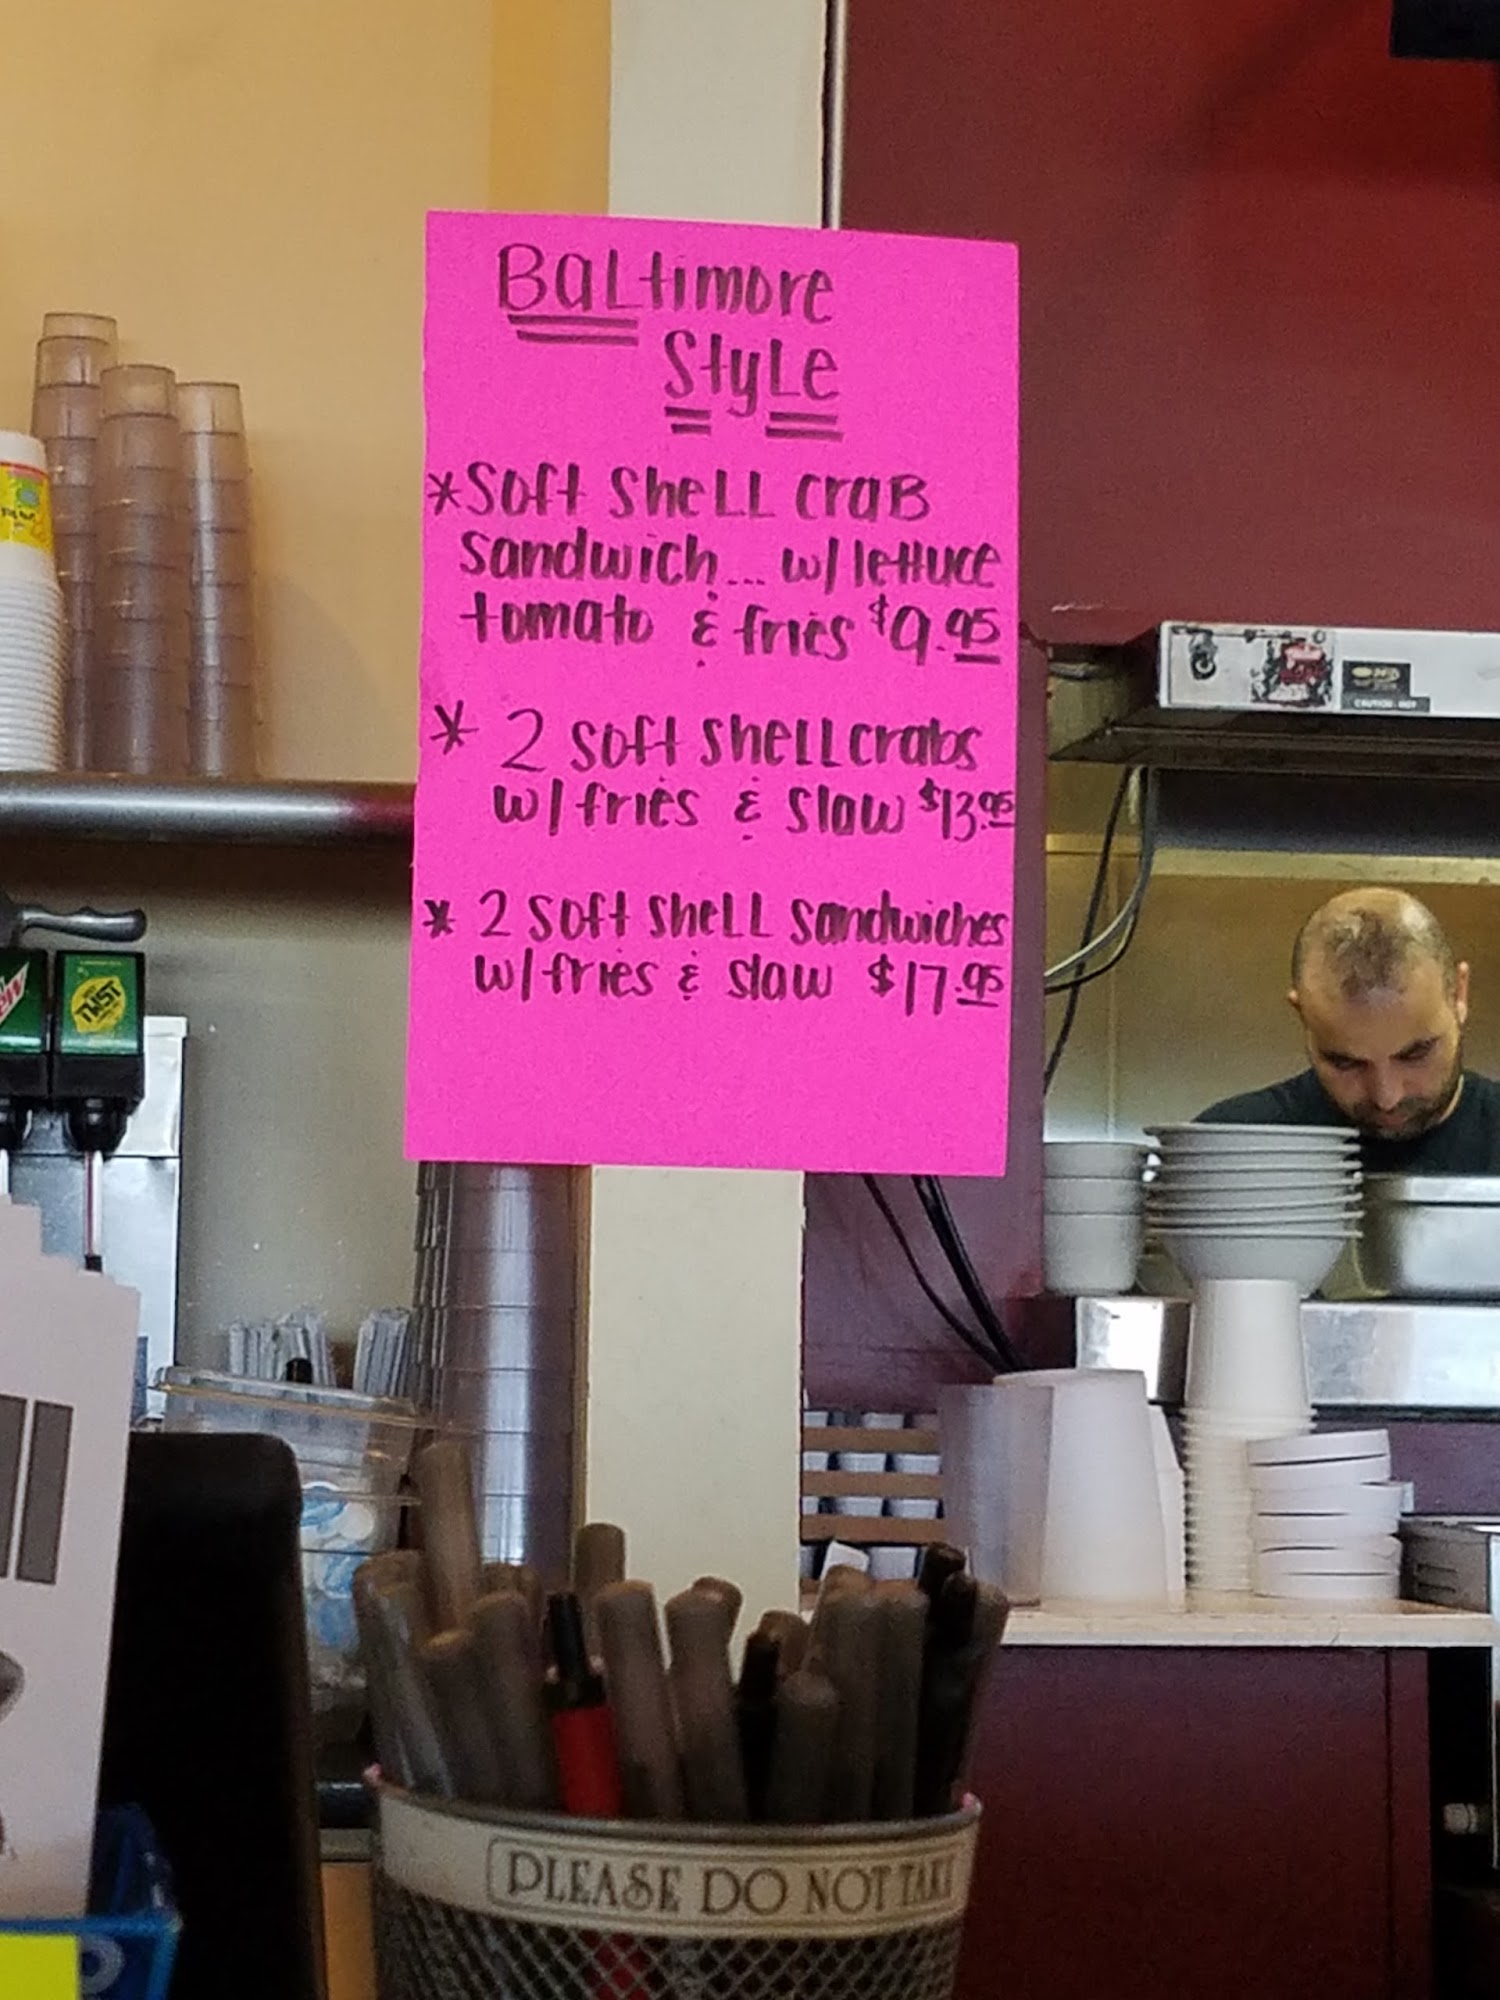 BaLtimore
StyLe
*Soft SheLL craB
sandwich... w/lettuce
tomato & fries $9.95
* 2 soft sheLLcrabs
w/fries & slaw $13.95
* 2 soft sheLL sandwiches
w/fries & slaw $17.95
TWST
PLEASE DO NOT TAKE